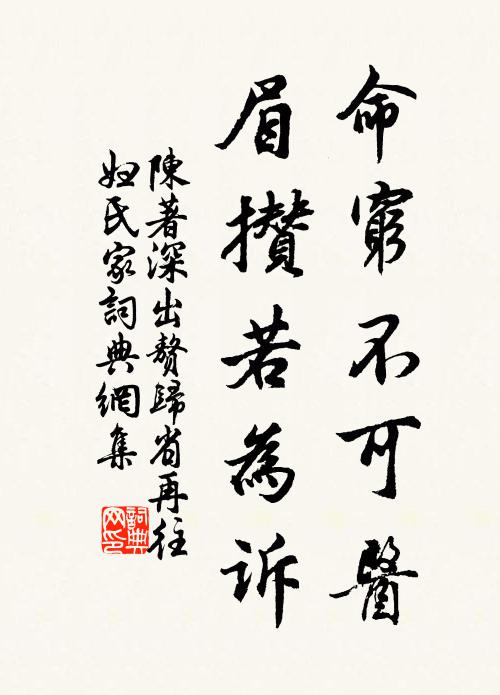 命窮不可醫
眉攢若為訴
陳著深出贅歸省再往
妞氏家詞典網集
詞典
网印